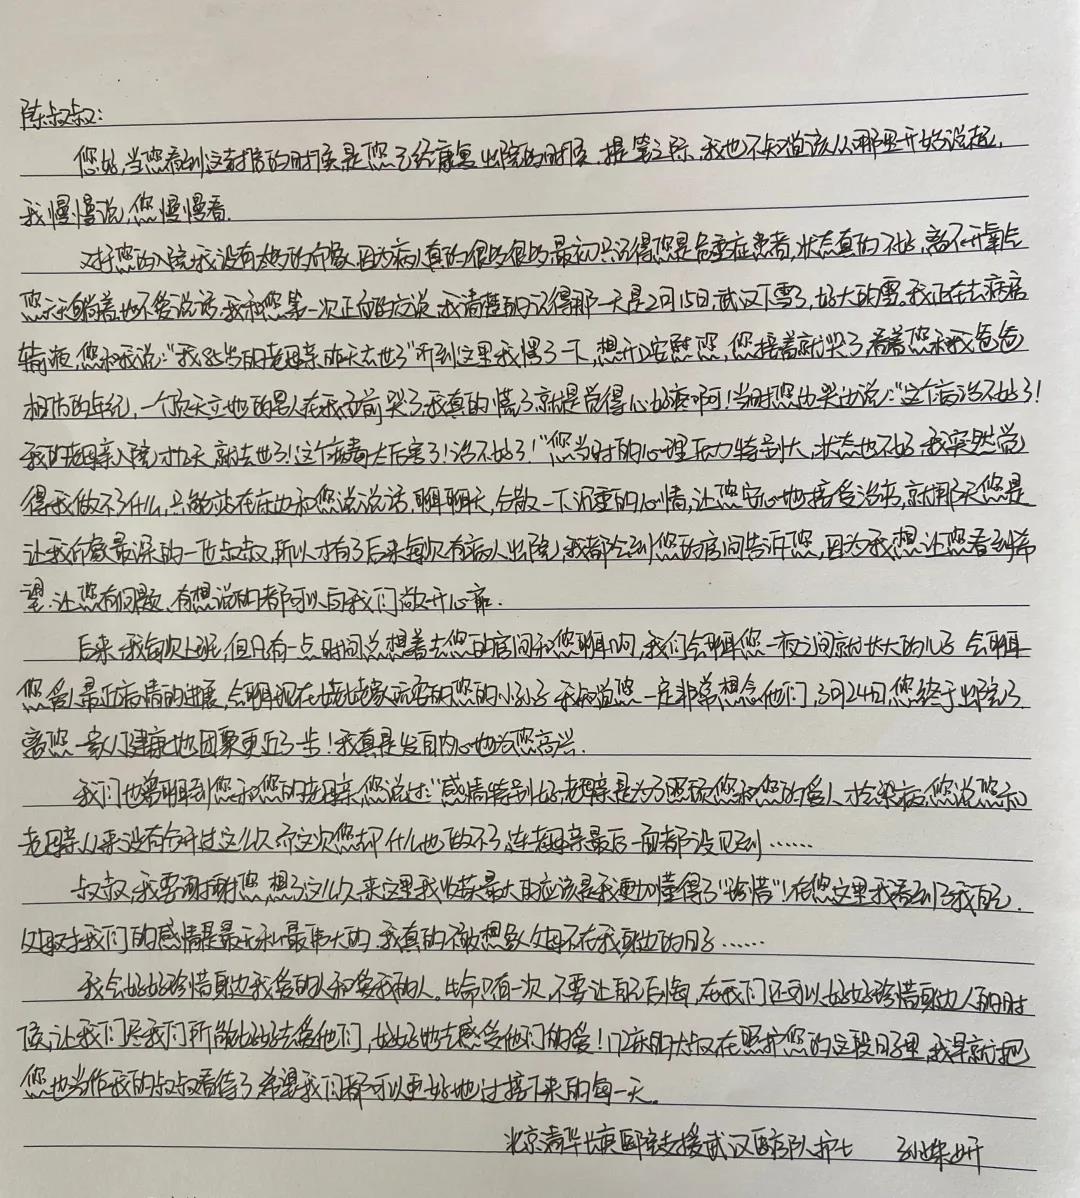 陈叔叔：
您好，当您看到这封信的时候是您已经康复出院的时候，提笔之际，我也不知道该从哪里开始说起，
我慢慢说，您慢慢看。
对于您的入院我没有太多的印象，因为病人真的很多很多，最初只记得您是危重症患者，状态真的不好，离不开氧气，
您天天躺着，也不爱说话，我和您第一次正面的交谈，我清楚的记得那一天是2月15日，武汉下雪了，好大的雪。我正在去病房
输液，您和我说：“我85岁的老母亲昨天去世了”听到这里我愣了一下，想开口安慰您，您接着就哭了，看着您和我爸爸
相仿的年纪，一个顶天立地的男人在我面前哭了，我真的慌了，就是觉得心好疼啊！当时您边哭边说：“这个病治不好了！
我的老母亲入院才2天就去世了！这个病毒太厉害了！治不好了！”您当时的心理压力特别大，状态也不好，我突然觉
得我做不了什么，只能站在床边和您说说话，聊聊天，分散一下沉重的心情，让您安心地接受治疗，就那天您是
让我印象最深的一位叔叔，所以才有了后来每次有病人出院，我都会到您的房间告诉您，因为我想让您看到希
望，让您有问题、有想说的都可以与我们敞开心扉.
后来，我每次上班，但凡有一点时间总想着去您的房间和您聊聊，我们会聊您一夜之间就长大的儿子，会聊
您爱人最近病情的进展，会聊现在姥姥家玩耍的您的小孙子，我知道您一定非常想念他们，3月24日您终于出院了，
离您一家人健康地团聚更近了一步！我真是发自内心地为您高兴.
我们也曾聊到您和您的老母亲，您说过：“感情特别好，老母亲是为了照顾您和您的爱人才染病，您说您和
老母亲从来没有分开过这么久，而这次您却什么也做不了，连老母亲最后一面都没见到……
叔叔，我要谢谢您，想了这么久，来这里我收获最大的应该是我更加懂得了“珍惜”！在您这里我看到了我自己，
父母对我们的感情是最无私最伟大的，我真的不敢想象父母不在我身边的日子……
我会好好珍惜身边我爱的人和爱我的人。生命只有一次，不要让自己后悔，在我们还可以好好珍惜身边人的时
候，让我们尽我们所能好好去爱他们，好好地去感受他们的爱！17床的大叔，在照护您的这段日子里，我早就把
您也当作我的叔叔看待了，希望我们都可以更好地过接下来的每一天。
北京清华长庚医院支援武汉医疗队护士 孙姝妍